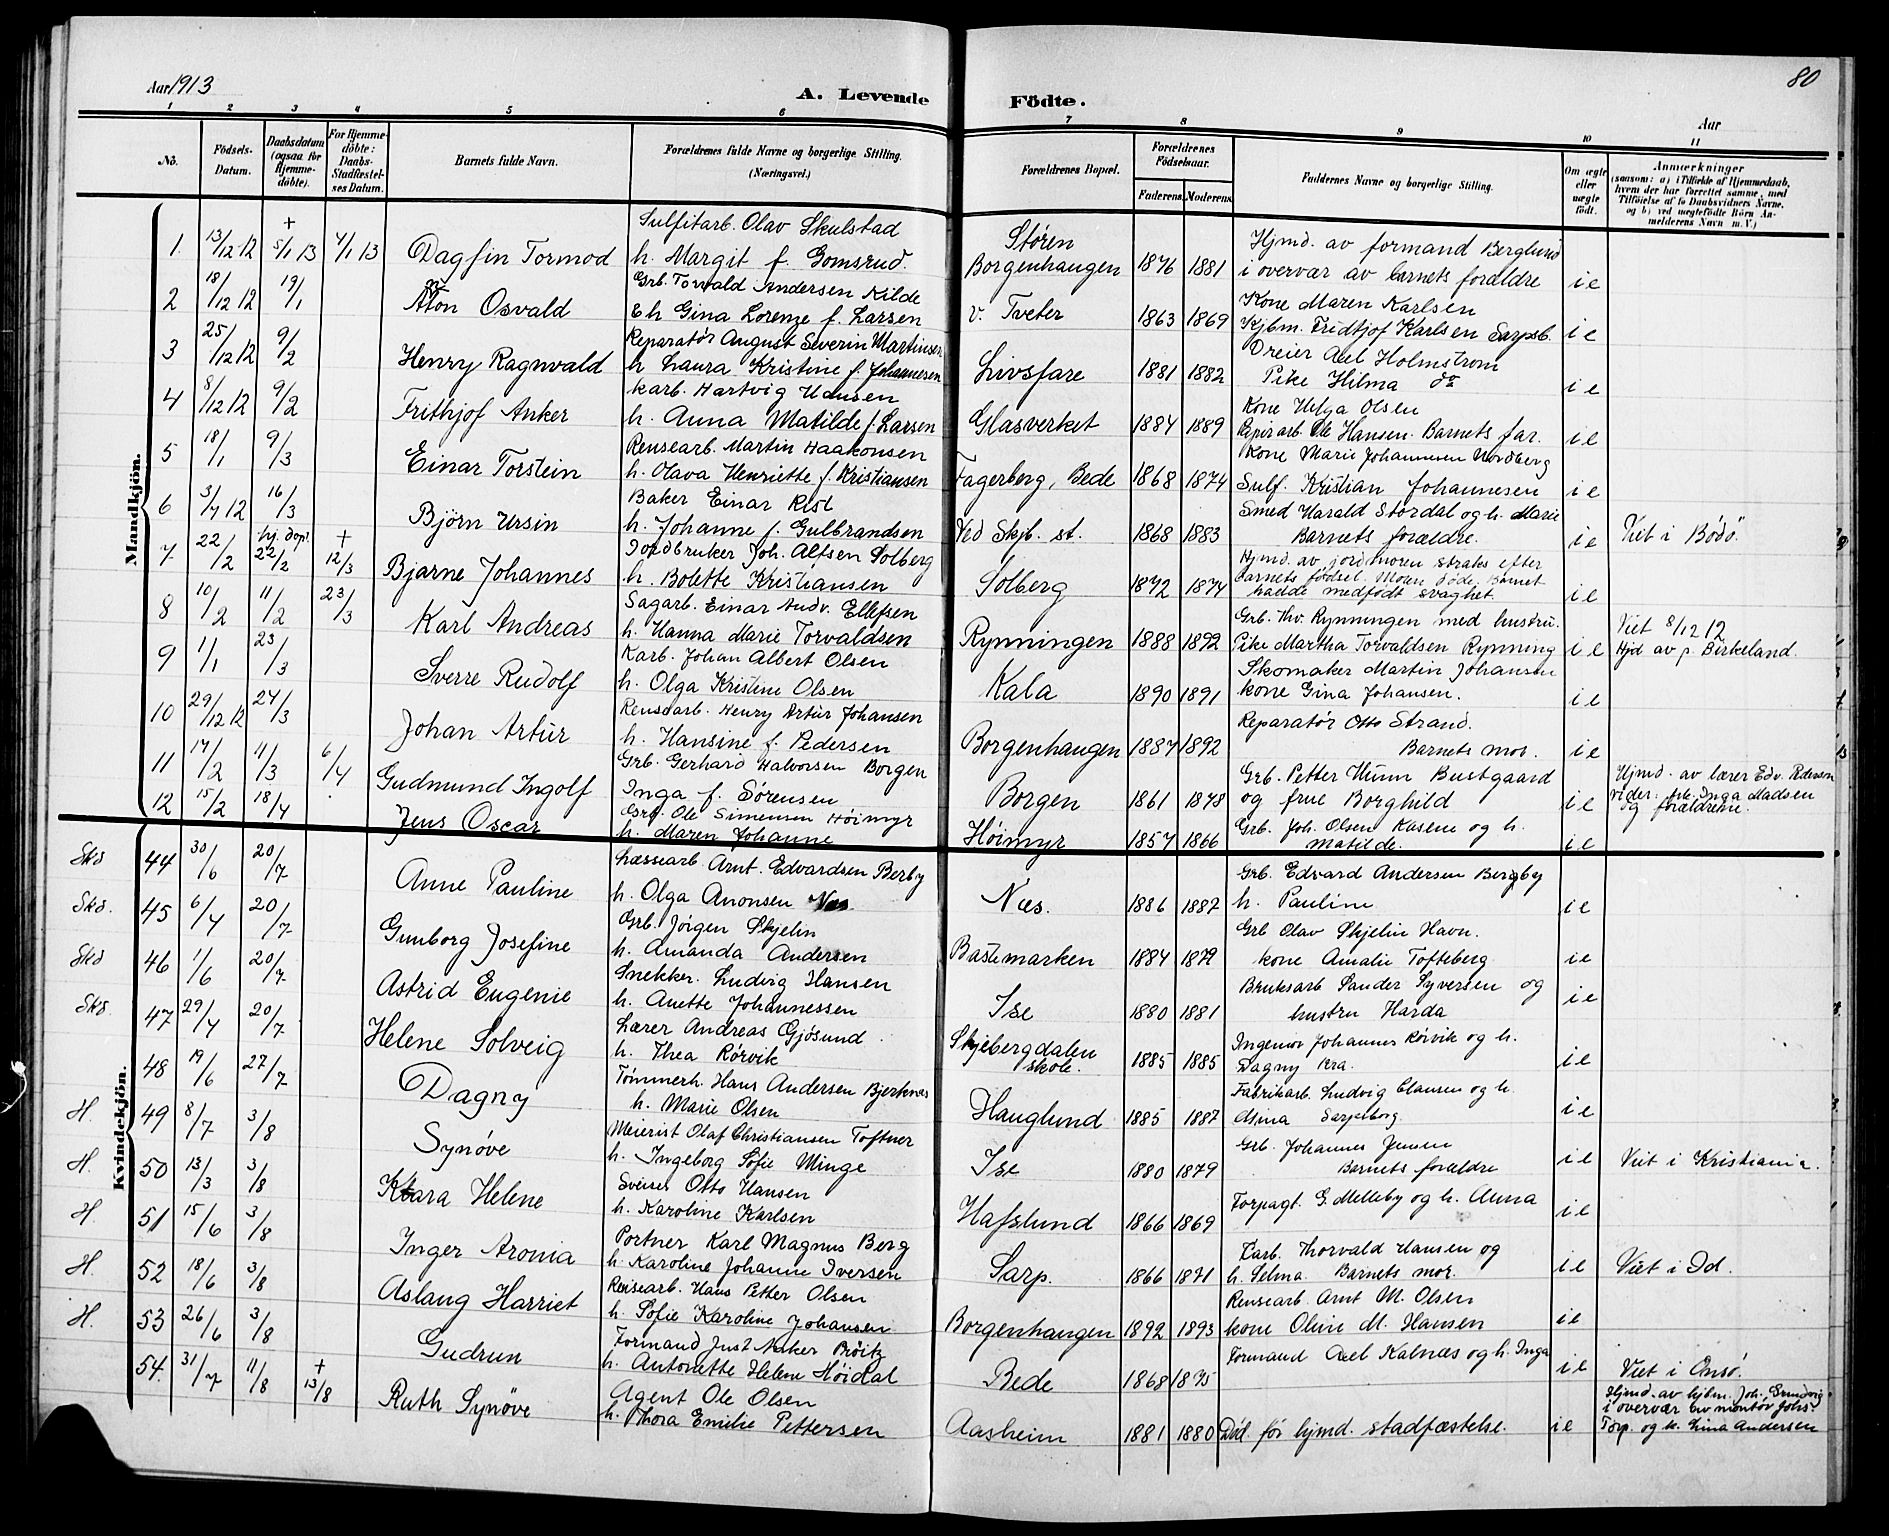 Aar 1913
A. Levende Födte.
80
Aar
1 2 3 4 5 6 7 8 9 10 11
No.
Födsels-Datum.
Daabsdatum (ogsaa for Hjemme-döbte).
For Hjemme-döbte: Daabs-Stadfæstelses Datum.
Barnets fulde Navn.
Forældrenes fulde Navne og borgerlige Stilling. (Næringsvei.)
Forældrenes Bopæl.
Forældrenes Födselsaar.
Faderens. Moderens.
Faddernes Navne og borgerlige Stilling.
Om ægte eller uægte födt.
Anmærkninger
(saasom: a) i Tilfælde af Hjemmedaab, hvem der har forrettet samme, med Tilföielse af to Daabsvidners Navne. og b) ved uægtefödte Börn Anmelderens Navn m. V.)
Mandkjön.
1 13/12 12 + 5/1 13 4/1 13 Dagfin Tormod Sulfitarb. Olav Skulstad
h. Margit f. Gomsrud. Støren Borgenhaugen 1876 1881 Hjmd. av formand Berglund
i overvær av barnets forældre i e
2 18/12 12 19/1 Anton Osvald Grb. Torvald Andersen Kilde
Eh Gina Lorenze f. Larsen v. Tveter 1863 1869 Kone Maren Karlsen
Kjbm. Fridtjof Karlsen Sarpsb. i e
3 25/12 12 9/2 Henry Ragnvald Reparatør August Severin Martinsen
h Laura Kristine f. Johannesen Livsfare 1881 1882 Dreier Axel Holmstrøm
Pike Hilma do i e
4 8/12 12 9/2 Frithjof Anker Karb. Hartvig Hansen
h. Anna Matilde f. Larsen Glasverket 1884 1889 Kone Helga Olsen
Papirarb. Ole Hansen. Barnets far. i e
5 18/1 9/3 Einar Torstein Rensearb. Martin Haakonsen
h. Olava Henriette f. Kristiansen Fagerberg, Bede 1868 1874 Kone Marie Johannesen Nordberg
Sulf. Kristian Johannesen i e
6 3/7 12 16/3 Björn Ursin Baker Einar Rist
h. Johanne f. Gulbrandsen Ved Skjb. st. 1868 1883 Smed Harald Stordal og h. Marie
Barnets forældre. i e Viet i Bodö.
7 22/2 hj. døpt 22/2 + 12/3 Bjarne Johannes Jordbruker Joh. Alfsen Solberg
h. Bolette Kristiansen Solberg 1872 1874 Hjmd. av jordmoren straks efter
barnets fødsel. Moren døde. Barnet
hadde medfødt svaghet. i e
8 10/2 11/2 23/3 Karl Andreas Sagarb. Einar Andv. Ellefsen
h. Hanna Marie Torvaldsen Rynningen 1888 1892 Grb. Thv. Rynningen med hustru.
Pike Martha Torvaldsen Rynning i e Viet 8/12 12
Hjd av p. Birkeland.
9 1/1 23/3 Sverre Rudolf Karb. Johan Albert Olsen
h. Olga Kristine Olsen Kala 1890 1891 Skomaker Martin Johansen
kone Gina Johansen. i e
10 29/12 12 24/3 Johan Artur Rensearb. Henry Artur Johansen
h. Hansine f. Pedersen Borgenhaugen 1887 1892 Reparatør Otto Strand.
Barnets mor. i e
11 17/2 11/3 6/4 Gudmund Ingolf Grb. Gerhard Halvorsen Borgen
Inga f. Sørensen Borgen 1861 1878 Grb. Petter Hunn Bustgaard
og frue Borghild i e Hjmd. av lærer Edv. Pedersen
Vidner: frk. Inga Madsen
og forældrene.
12 15/2 18/4 Jens Oscar Grb. Ole Simensen Höimyr
h. Maren Johanne Höimyr 1857 1866 Grb. Joh. Olsen Kasene og h.
Matilde. i e
Kvindekjön.
Skd 44 30/6 20/7 Anne Pauline Læssearb. Arnt. Edvardsen Berby
h. Olga Anonsen Næs Næs. 1886 1887 Grb. Edvard Andersen Bergby
h. Pauline i e
Skd. 45 6/4 20/7 Gunborg Josefine Grb. Jörgen Skjelin
h. Amanda Andersen Bastemarken 1884 1879 Grb Olav Skjelin Havn.
kone Amalie Tofteberg i e
Skd 46 1/6 20/7 Astrid Eugenie Snekker. Ludvig Hansen
h. Anette Johannessen Ise 1880 1881 Bruksarb Sander Syversen og
hustru Harda i e
Skd. 47 29/4 20/7 Helene Solveig Lærer Andreas Gjösund
h. Thea Rörvik Skjebergdalen skole. 1885 1885 Ingeniør Johannes Rörvik og h.
Dagny Kra. i e
48 19/6 27/7 Dagny Tømmerh. Hans Andersen Bjerknæs
h. Marie Olsen Hauglund 1885 1887 Fabrikarb. Ludvig Clausen og h.
Mina Sarpsborg. i e
H. 49 8/7 3/8 Synöve Meierist Olaf Christiansen Toftner
h. Ingeborg Sofie Minge Ise 1880 1879 Grb. Johannes Jensen
Barnets forældre i e Viet i Kristiania.
H. 50 13/3 3/8 Klara Helene Sveiser Otto Hansen
h. Karoline Karlsen Hafslund 1866 1869 Forpagt. G. Melleby og h. Anna i e
H. 51 15/6 3/8 Inger Aronia Portner Karl Magnus Berg
h. Karoline Johanne Iversen Sarp. 1866 1871 Karb. Thorvald Hansen og
h. Selma. Barnets mor. i e Viet i Id.
H. 52 18/6 3/8 Aslaug Harriet Rensearb. Hans Petter Olsen
h. Sofie Karoline Johansen Borgenhaugen 1892 1893 Rensearb. Arnt M. Olsen
kone Oline M. Hansen i e
H. 53 26/6 3/8 Gudrun Formand Just Anker Bröitz
h. Antonette Helene Höidal Bede 1868 1875 Formand Axel Kalnæs og h. Inga i e Viet i Onsö.
54. 31/7 11/8 + 13/8 Ruth Synöve Agent Ole Olsen
h. Thora Emilie Pettersen Aasheim 1881 1880 Död för hjmd. stadfæstelse. i e Hjmd. av hjbm. Joh. Grundvig
i overvær av montør Johs.
Torp. og k. Lina Andersen